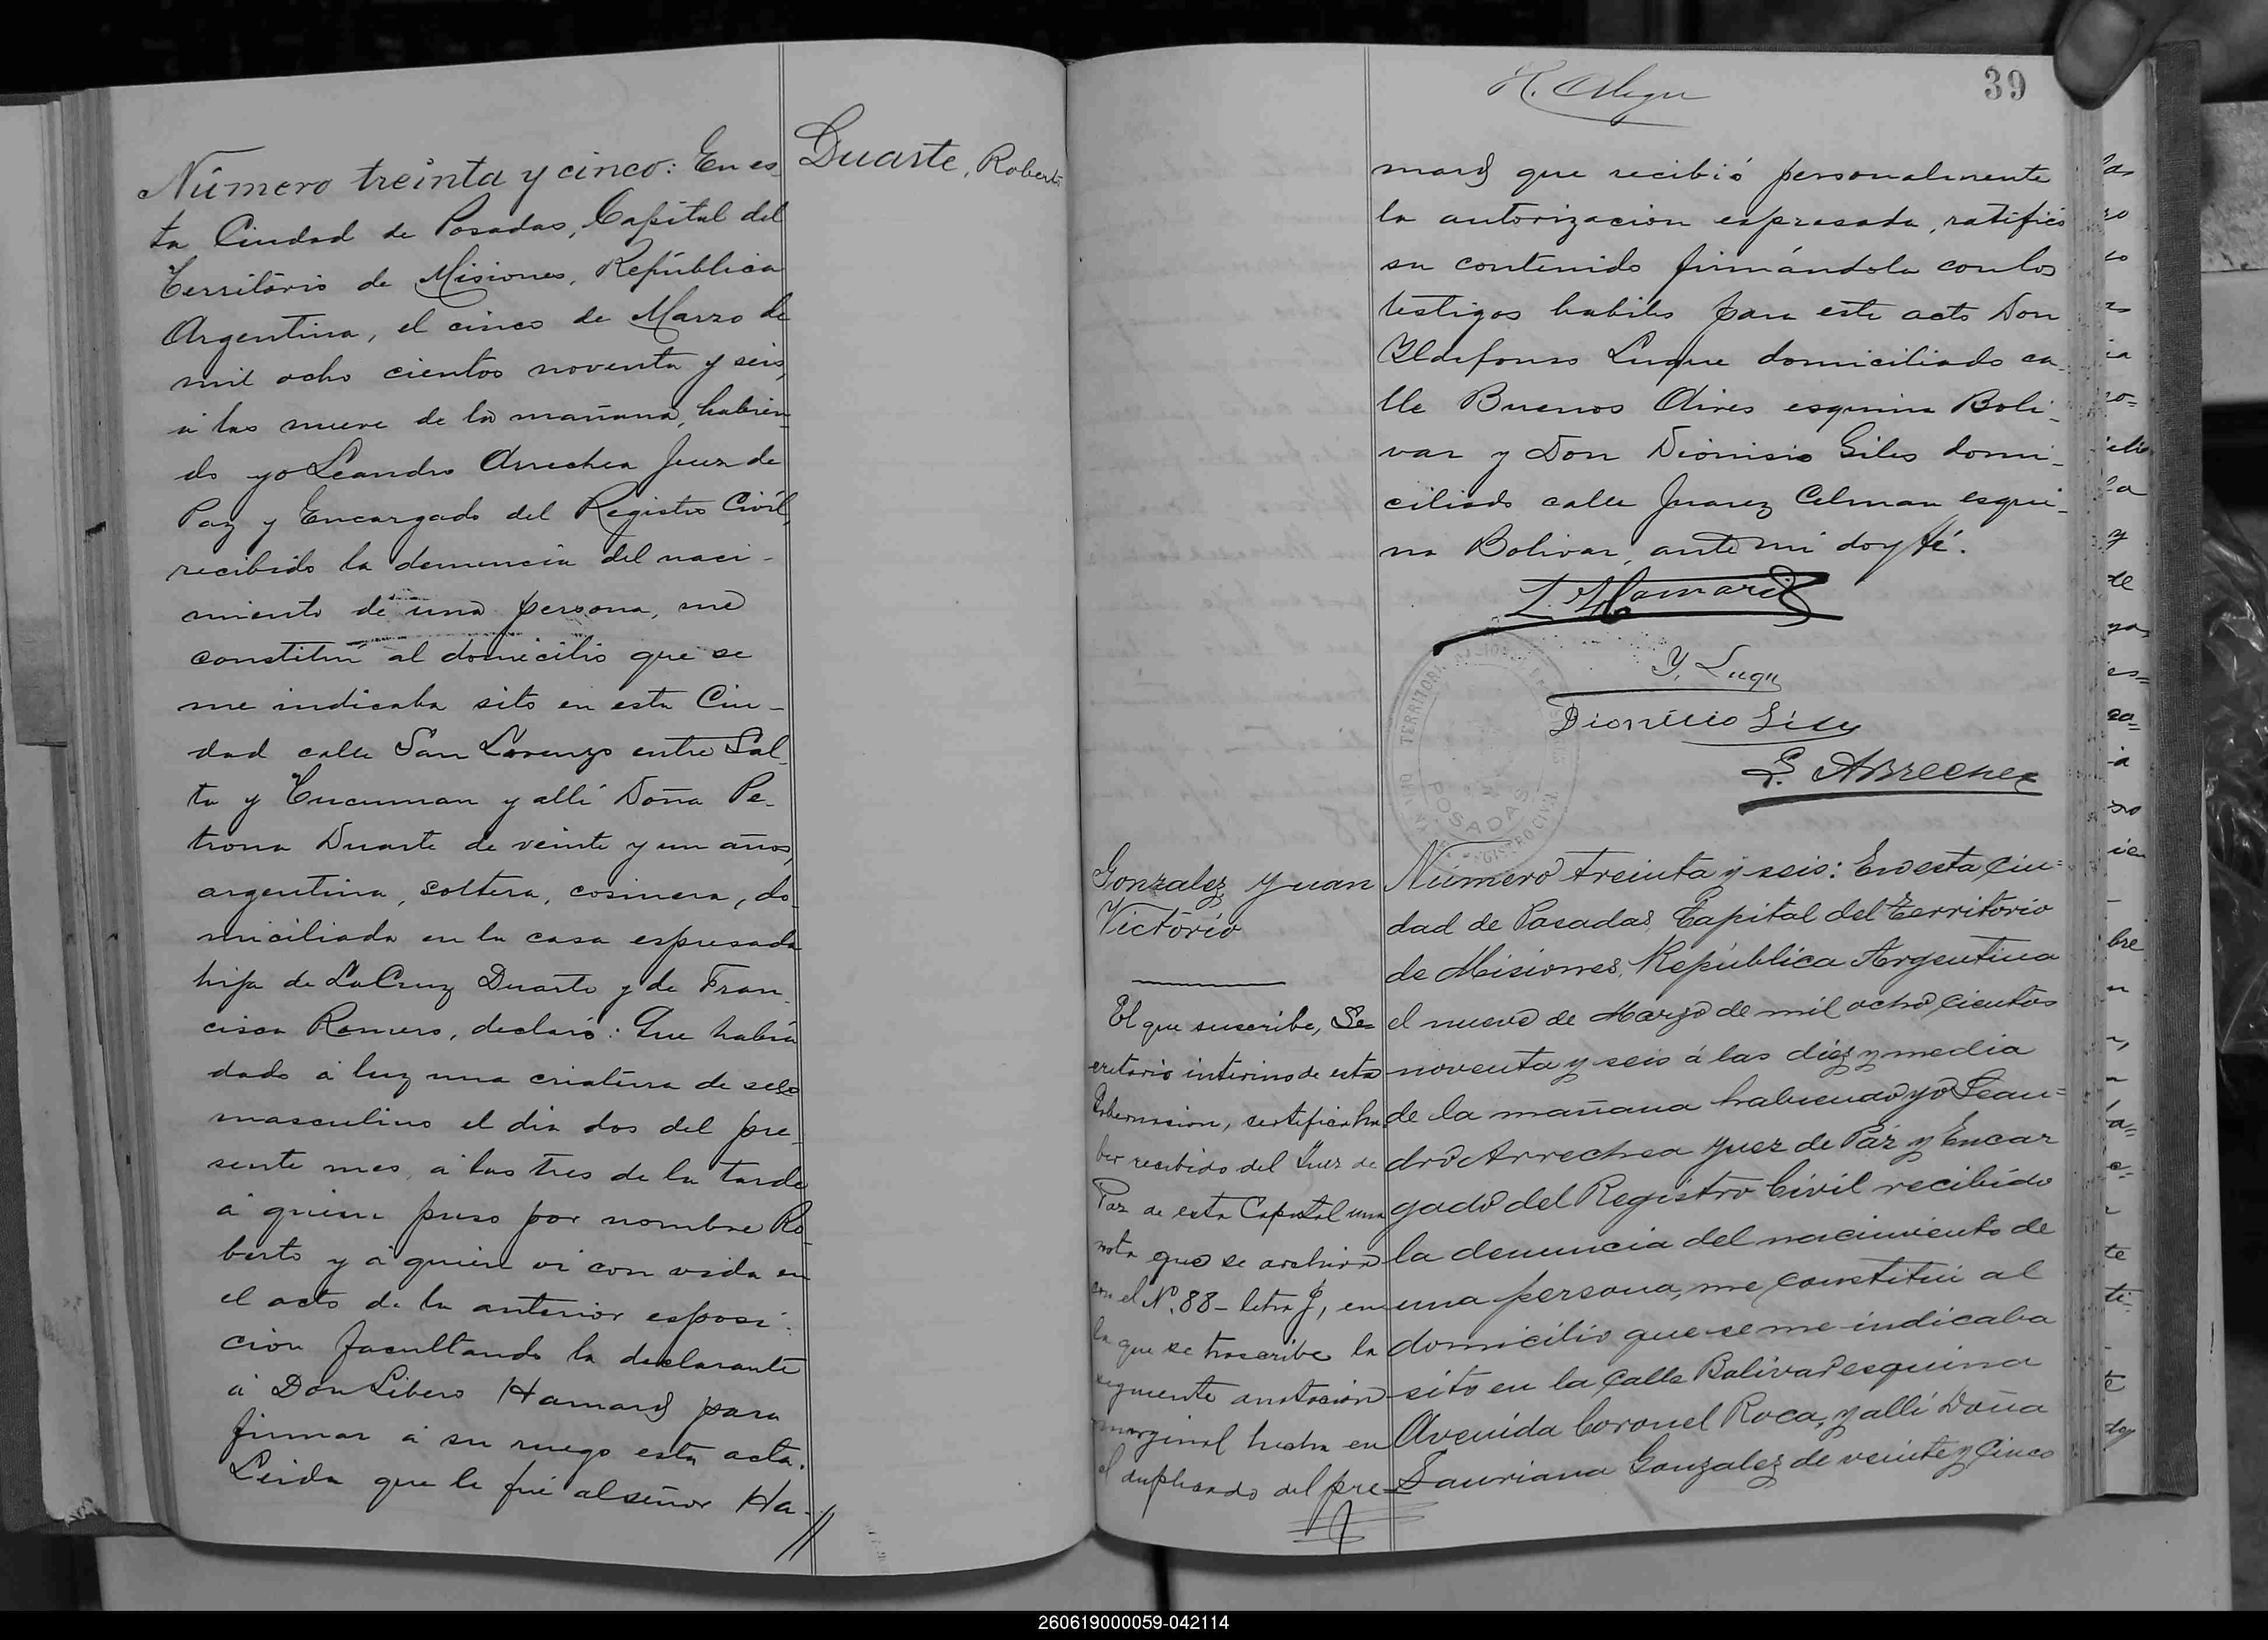 Número treinta y cinco: En es-
ta Ciudad de Posadas, Capital del
Territorio de Misiones, República
Argentina, el cinco de Marzo de
mil ocho cientos noventa y seis,
á las nueve de la mañana, habien-
do yo Leandro Arrechea Juez de
Paz y Encargado del Registro Civil,
recibido la denuncia del naci-
miento de una persona, me
constituí al domicilio que se
me indicaba sito en esta Ciu-
dad calle San Lorenzo entre Sal-
ta y Tucuman y allí Doña Pe-
trona Duarte de veinte y un años,
argentina, soltera, cosinera, do-
miciliada en la casa espresada
hija de LaCruz Duarte y de Fran-
cisca Romero, declaró: Que habia
dado á luz una criatura de secso
masculino el dia dos del pre-
sente mes, á las tres de la tarde
á quien puso por nombre Ro-
berto y á quien vi con vida en
el acto de la anterior esposi-
cion facultando la declarante
á Don Libero Hamard para
firmar á su ruego esta acta.
Leida que le fué al señor Ha-
Duarte, Roberto
39
mard que recibió personalmente
la autorizacion espresada, ratificó
su contenido firmándola con los
testigos habiles para este acto Don
Yldefonso Luque domiciliado ca-
lle Buenos Aires esquina Boli-
var y Don Dionisio Giles domi-
ciliado calle Juarez Celman esqui-
na Bolivar, ante mi doy fé.
L. Hamard
Y. Luqu
Dionicio Giles
L. Arrechea
POSADAS
Gonzalez Juan
Victorio
El que suscribe, Se-
cretario interino de esta
Gobernacion, certifica ha
ber recibido del Juez de
Paz de esta Capital una
nota que se archiva
con el Nº. 88 - letra J, en
la que se trascribe la
siguiente anotacion
marginal hecha en
el duplicado del pre-
Número treinta y seis: En esta Ciu=
dad de Posadas, Capital del Territorio
de Misiones, República Argentina
el nueve de Marzo de mil ocho cientos
noventa y seis á las diez y media
de la mañana habiendo yo Lean=
dro Arrechea Juez de Paz y Encar
gado del Registro Civil recibido
la denuncia del nacimiento de
una persona, me constituí al
domicilio que se me indicaba
sito en la Calle Bolivar esquina
Avenida Coronel Roca, y allí Doña
Lauriana Gonzalez de veinte y Cinco
260619000059-042114